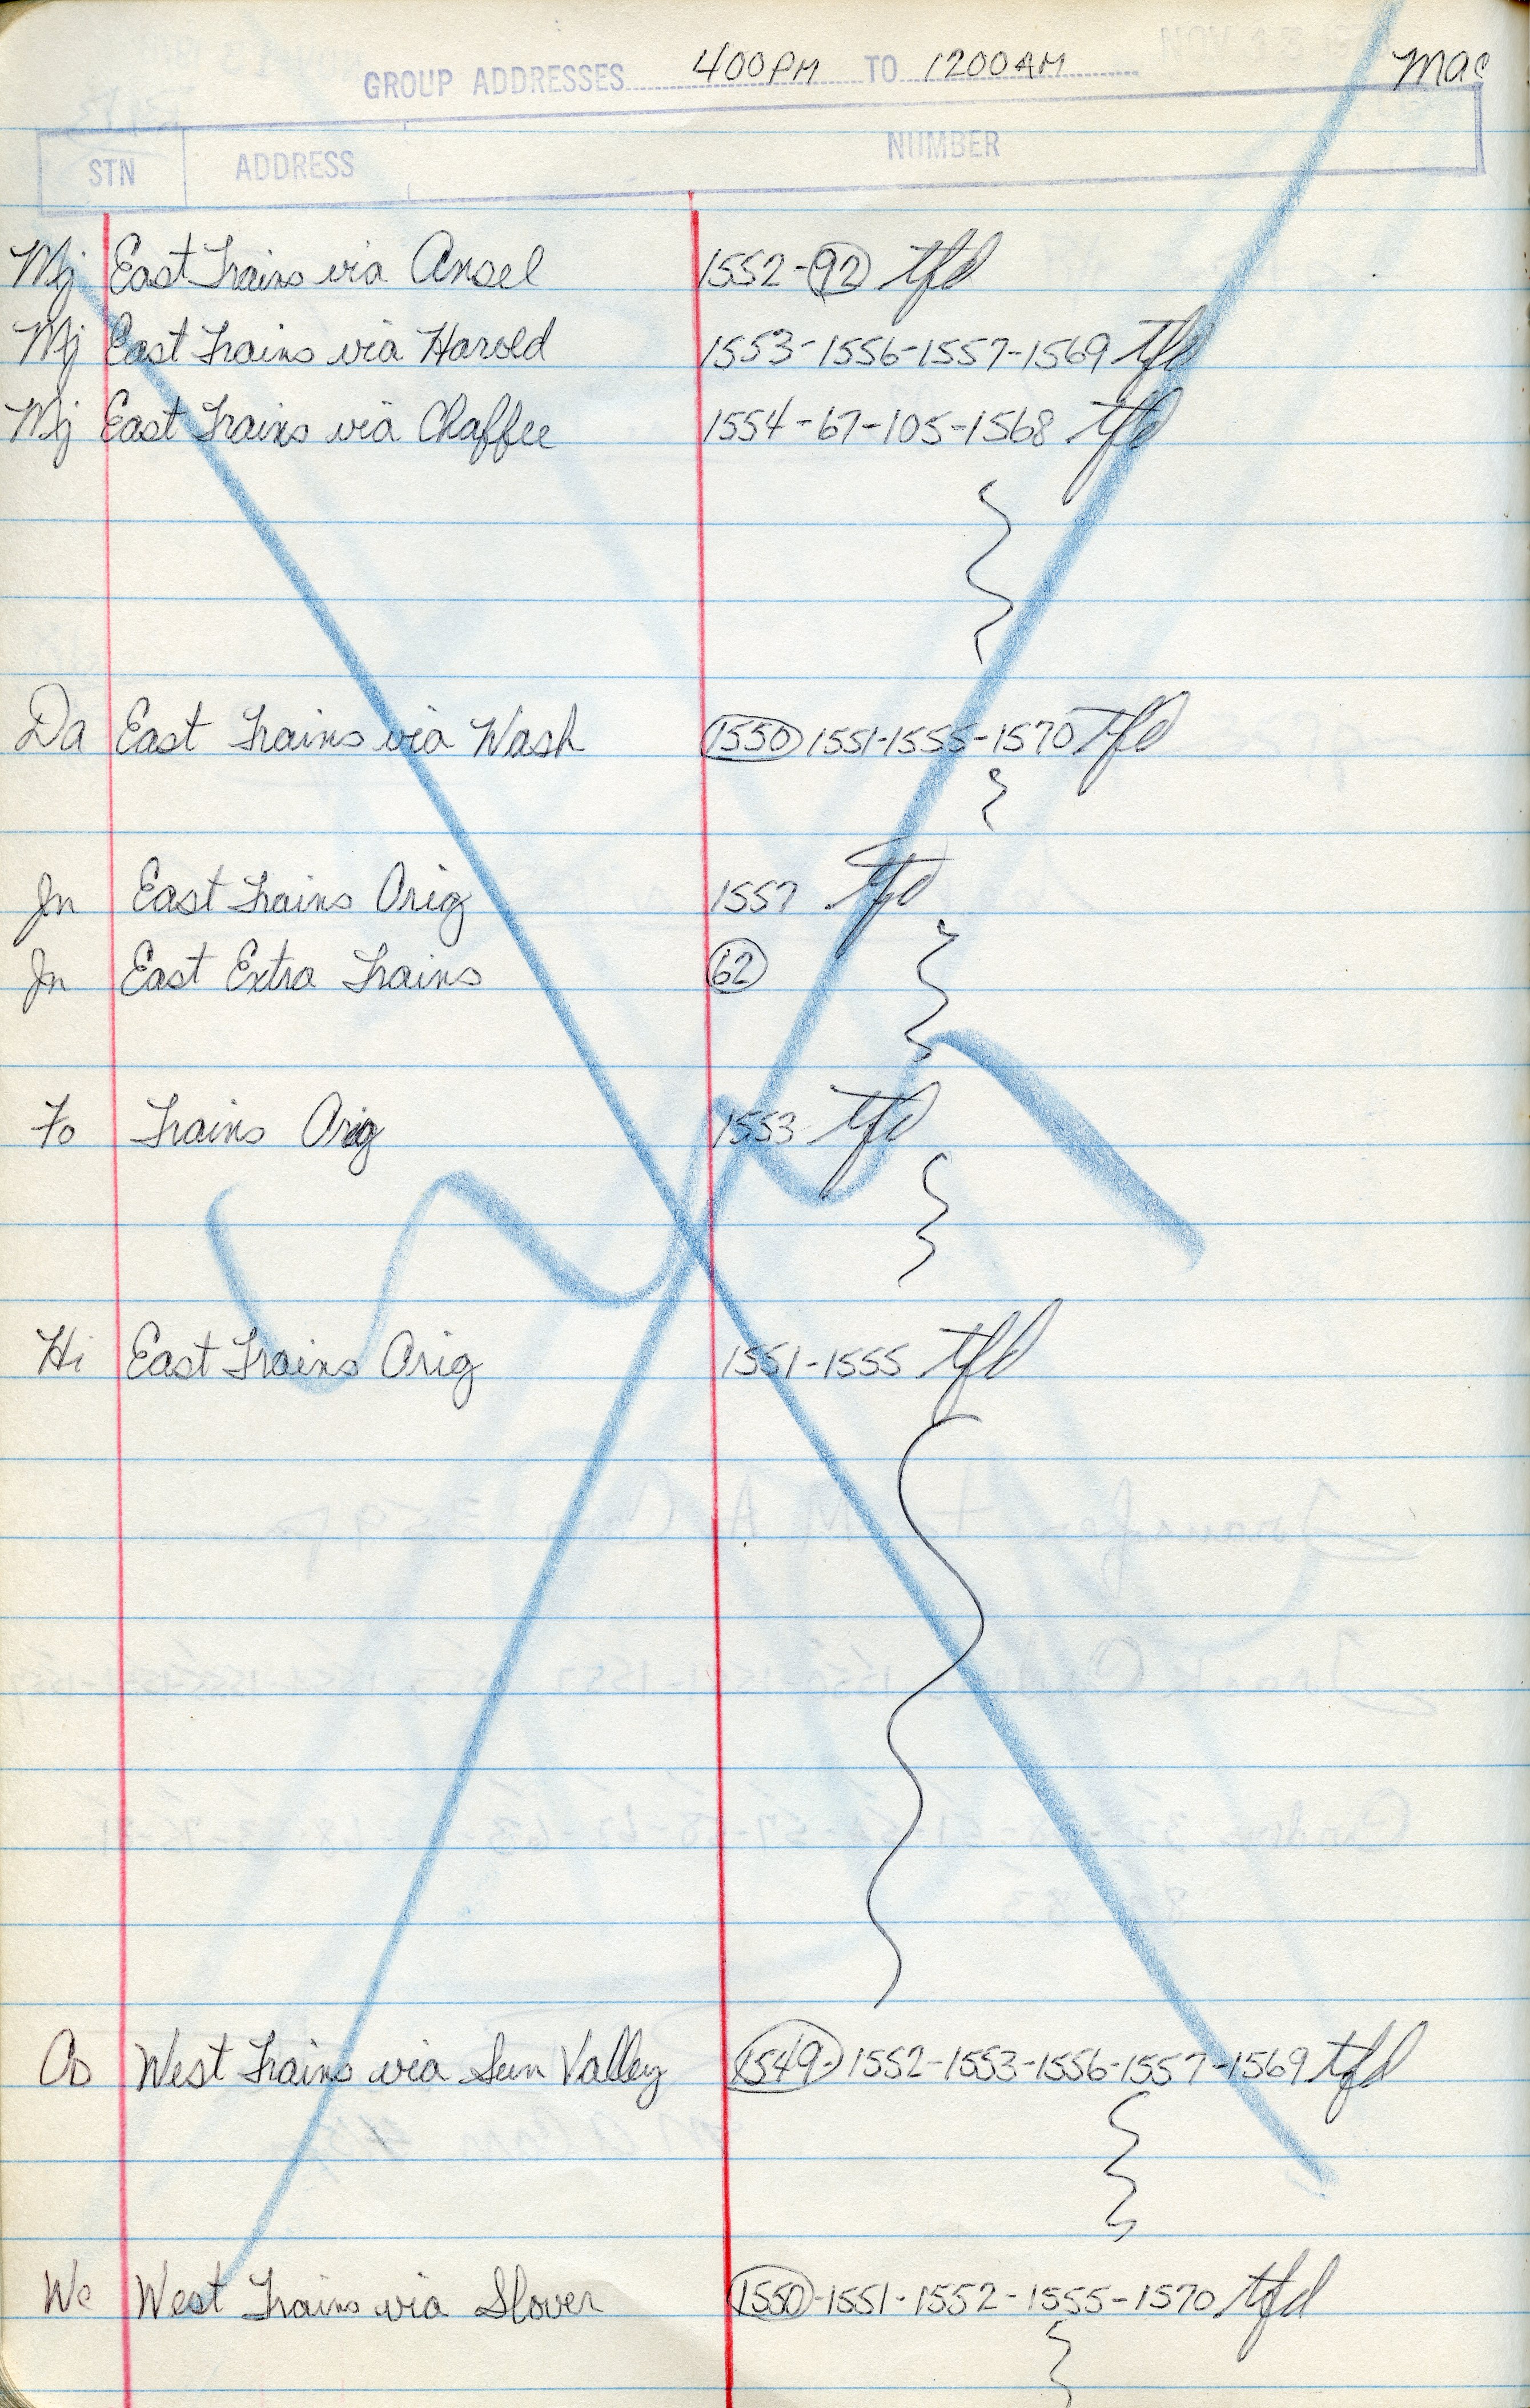 GROUP ADDRESSES 400PM TO 1200AM Mac
STN ADDRESS NUMBER
Mj East Trains via Ansel 1552-92 tfd
Mj East Trains via Harold 1553-1556-1557-1569 tfd
Mj East Trains via Chaffee 1554-67-105-1568 tfd
Da East Trains via Wash 1550 1551-1555-1570 tfd
Jn East Trains Orig 1557 tfd
Jn East Extra Trains 62
Fo Trains Orig 1553 tfd
Hi East Trains Orig 1551-1555 tfd
Co West Trains via Sun Valley 1549-1552-1553-1556-1557-1569 tfd
Wc West Trains via Slover 1550-1551-1552-1555-1570 tfd